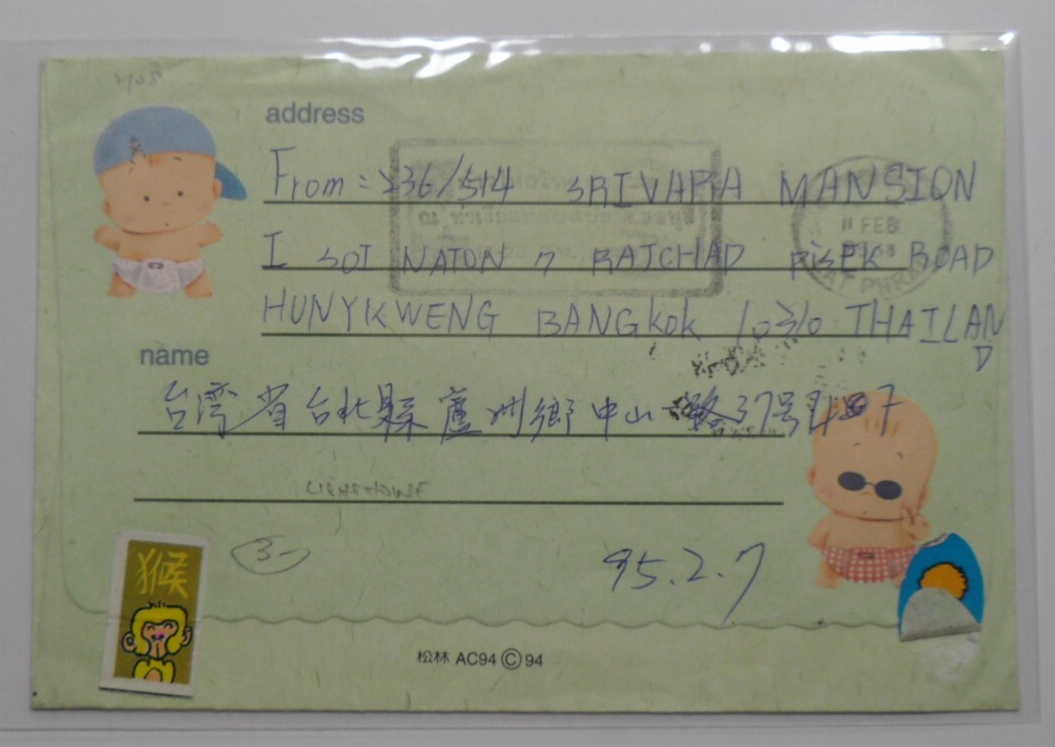 address
From: 236/514 SRIVARA MANSION
I SOI NATON 7 RATCHAD PISEK ROAD
11 FEB
HUNYKWENG BANGkok 10310 THAILAND
name
台湾省台北縣蘆洲鄉中山一路37号4F 7
猴
95.2.7
松林 AC94 © 94